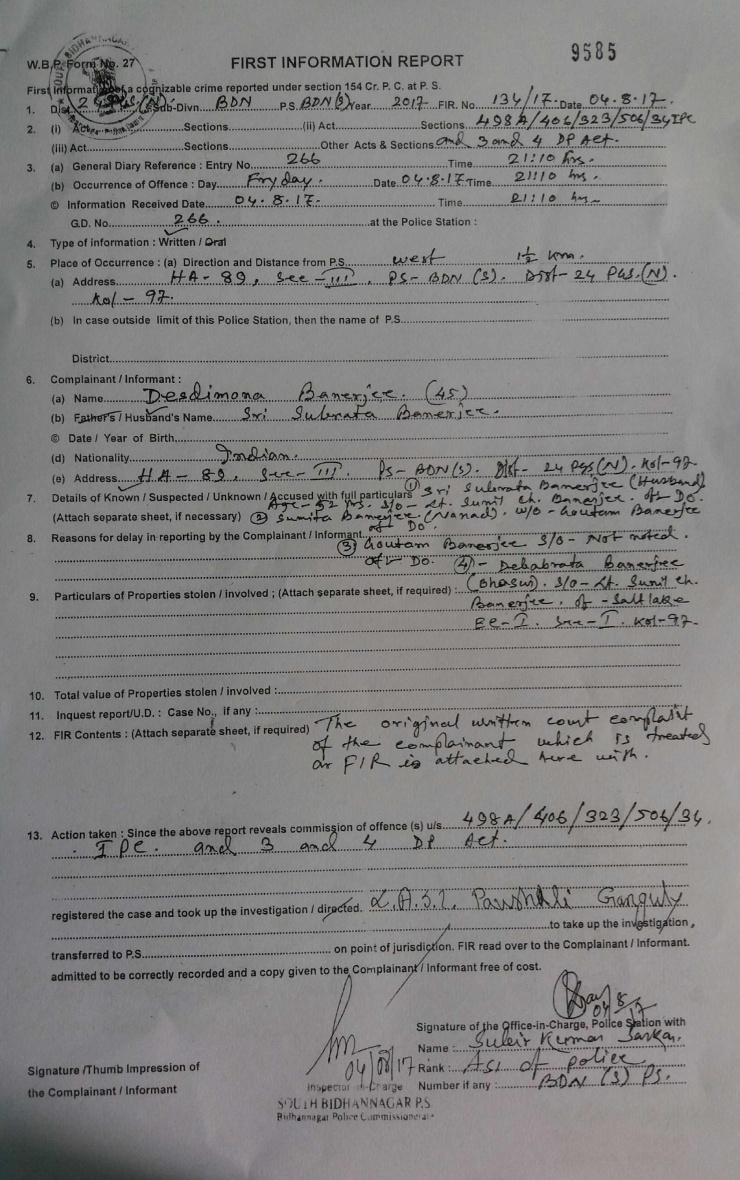 9585
W.B.P. Form No. 27
FIRST INFORMATION REPORT
First information of a cognizable crime reported under section 154 Cr. P. C. at P. S.
1. Dist. 24 PGS.(N). Sub-Divn. BDN P.S. BDN(S) Year 2017 FIR. No. 134/17. Date 04.8.17.
2. (i) Act Sections (ii) Act Sections 498A/406/323/506/34 IPC
(iii) Act Sections Other Acts & Sections and 3 and 4 DP Act.
3. (a) General Diary Reference : Entry No. 266 Time 21:10 hrs.
(b) Occurrence of Offence : Day Fryday. Date 04.8.17 Time 21:10 hrs.
© Information Received Date 04.8.17. Time 21:10 hrs.
G.D. No. 266. at the Police Station :
4. Type of information : Written / Oral
5. Place of Occurrence : (a) Direction and Distance from P.S. west 1½ km.
(a) Address HA-89, Sec-III, PS-BDN (S). Dist-24 PGS.(N).
Kol-97.
(b) In case outside limit of this Police Station, then the name of P.S.
District
6. Complainant / Informant :
(a) Name Desdimona Banerjee. (45)
(b) Father's / Husband's Name Sri Subrata Banerjee.
© Date / Year of Birth
(d) Nationality Indian.
(e) Address HA-89, Sec-III. PS-BDN(S). Dist-24 PGS(N). Kol-97
7. Details of Known / Suspected / Unknown / Accused with full particulars ① Sri Subrata Banerjee (Husband)
Age-52 yrs. S/O-Lt. Sunil Ch. Banerjee. of Do.
(Attach separate sheet, if necessary) ② Sumita Banerjee (Nanad). W/O-Goutam Banerjee
of Do
8. Reasons for delay in reporting by the Complainant / Informant
③ Goutam Banerjee S/O-Not noted.
of Do. ④-Debabrata Banerjee
(Bhasur). S/O-Lt. Sunil Ch.
9. Particulars of Properties stolen / involved ; (Attach separate sheet, if required) :
Banerjee. of-Salt lake
EE-I. Sec-I. Kol-97.
10. Total value of Properties stolen / involved :
11. Inquest report/U.D. : Case No., if any :
12. FIR Contents : (Attach separate sheet, if required) The original written court complaint
of the complainant which is treated
as FIR is attached here with.
13. Action taken : Since the above report reveals commission of offence (s) u/s. 498A/406/323/506/34.
IPC. and 3 and 4 DP Act.
registered the case and took up the investigation / directed. L.A.S.I. Ganguly
to take up the investigation,
transferred to P.S. on point of jurisdiction. FIR read over to the Complainant / Informant.
admitted to be correctly recorded and a copy given to the Complainant / Informant free of cost.
04/8/17
Signature of the Office-in-Charge, Police Station with
Name : Subir Kumar Sarkar.
04/08/17
Rank : ASI of police
Number if any : BDN (S) PS.
Signature /Thumb Impression of
the Complainant / Informant
Inspector-in-Charge
SOUTH BIDHANNAGAR P.S
Bidhannagar Police Commissionerate